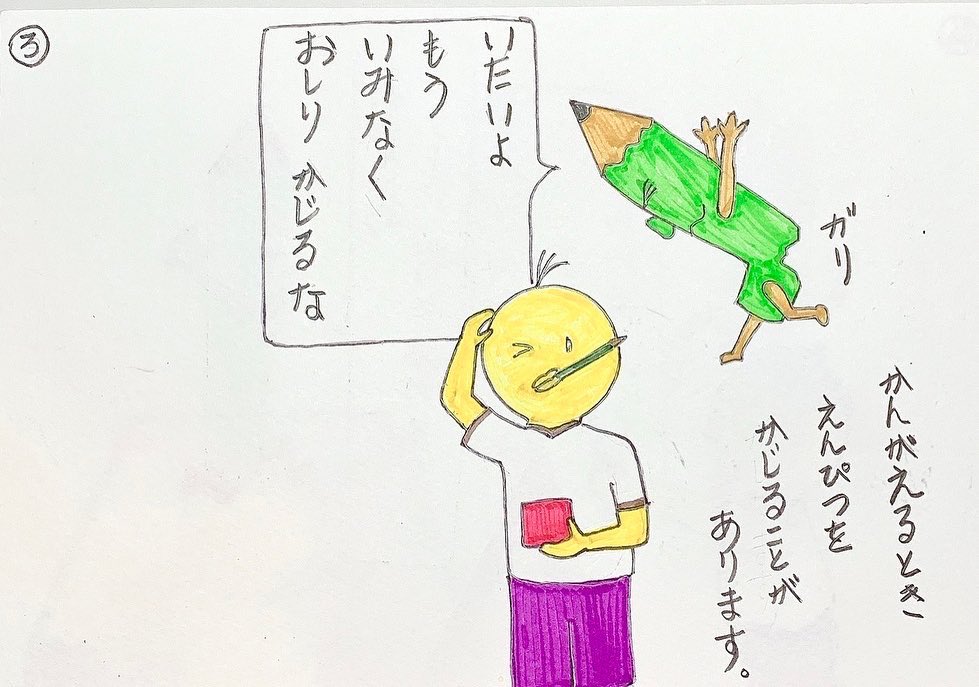 3
かんがえるとき
えんぴつを
かじることが
あります。
ガリ
いたいよ
もう
いみなく
おしり かじるな